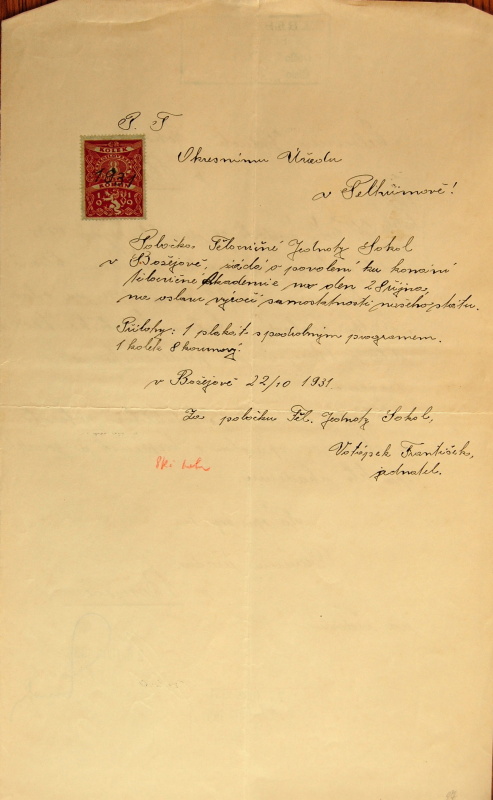 P. T
KOLEK
1931
Okresnímu Úřadu
v Pelhřimově!
Pobočka Tělocvičné Jednoty Sokol
v Božejově, žádá o povolení ku konání
tělocvičné Akademie na den 28 října
na oslavu výročí samostatnosti našeho státu.
Přílohy: 1 plakát s podrobným programem.
1 kolek 8 korunový.
v Božejově 22/10 1931
Za pobočku Těl. Jednoty Sokol,
Votápek František,
jednatel.